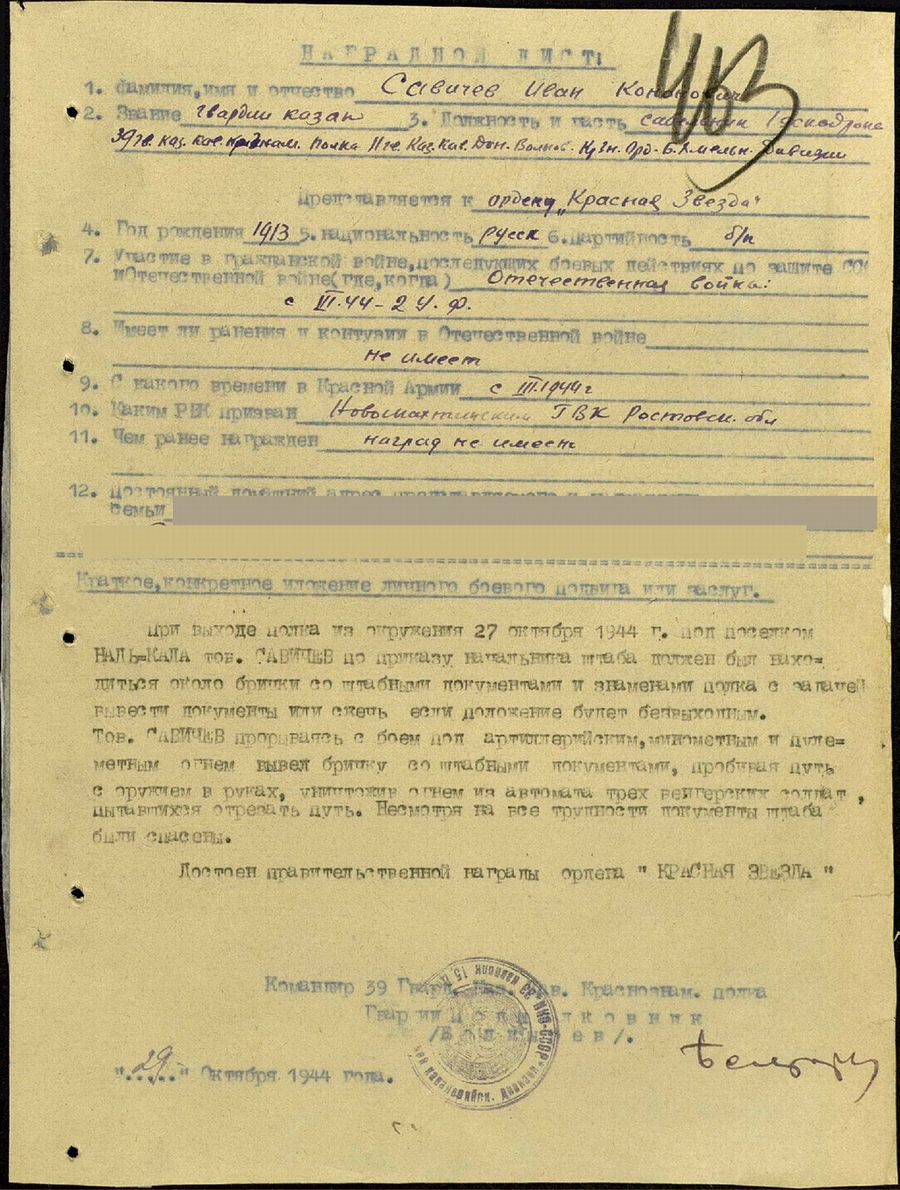 НАГРАДНОЙ ЛИСТ:
403
1. Фамилия, имя и отчество Савичев Иван Кононович
2. Звание гвардии казак 3. Должность и часть сабельник 1 эскадрона
39 гв. каз. кав. краснознам. полка 11 гв. Каз. Кав. Дон. Волнов. Кр. Зн. Орд. Б. Хмельн. дивизии
Представляется к ордену „Красная Звезда"
4. Год рождения 1913 5. национальность русск 6. Партийность б/п
7. Участие в гражданской войне, последующих боевых действиях по защите ССС
и Отечественной войне (где, когда) Отечественная война:
с III.44 - 2 У. Ф.
8. Имеет ли ранения и контузии в Отечественной войне
не имеет
9. С какого времени в Красной Армии с III.1944 г
10. Каким РВК призван Новошахтинским ГВК Ростовск. обл
11. Чем ранее награжден наград не имеет
12. Постоянный домашний адрес представляемого к
семьи
Краткое, конкретное иложение личного боевого подвига или заслуг.
При выходе полка из окружения 27 октября 1944 г. под поселком
НАДЬ=КАЛА тов. САВИЧЕВ по приказу начальника штаба должен был нахо=
диться около брички со штабными документами и знаменами полка с задачей
вывести документы или сжечь если положение будет безвыходным.
Тов. САВИЧЕВ прорываясь с боем под артиллерийским, минометным и пуле=
метным огнем вывел бричку со штабными документами, пробивая путь
с оружием в руках, уничтожив огнем из автомата трех венгерских солдат,
пытавшихся отрезать путь. Несмотря на все трудности документы штаба
были спасены.
Достоен правительственной награды ордена " КРАСНАЯ ЗВЕЗДА "
Командир 39 Гвард. Каз. Кав. Краснознам. полка
Гвардии Подполковник
"29" Октября 1944 года.